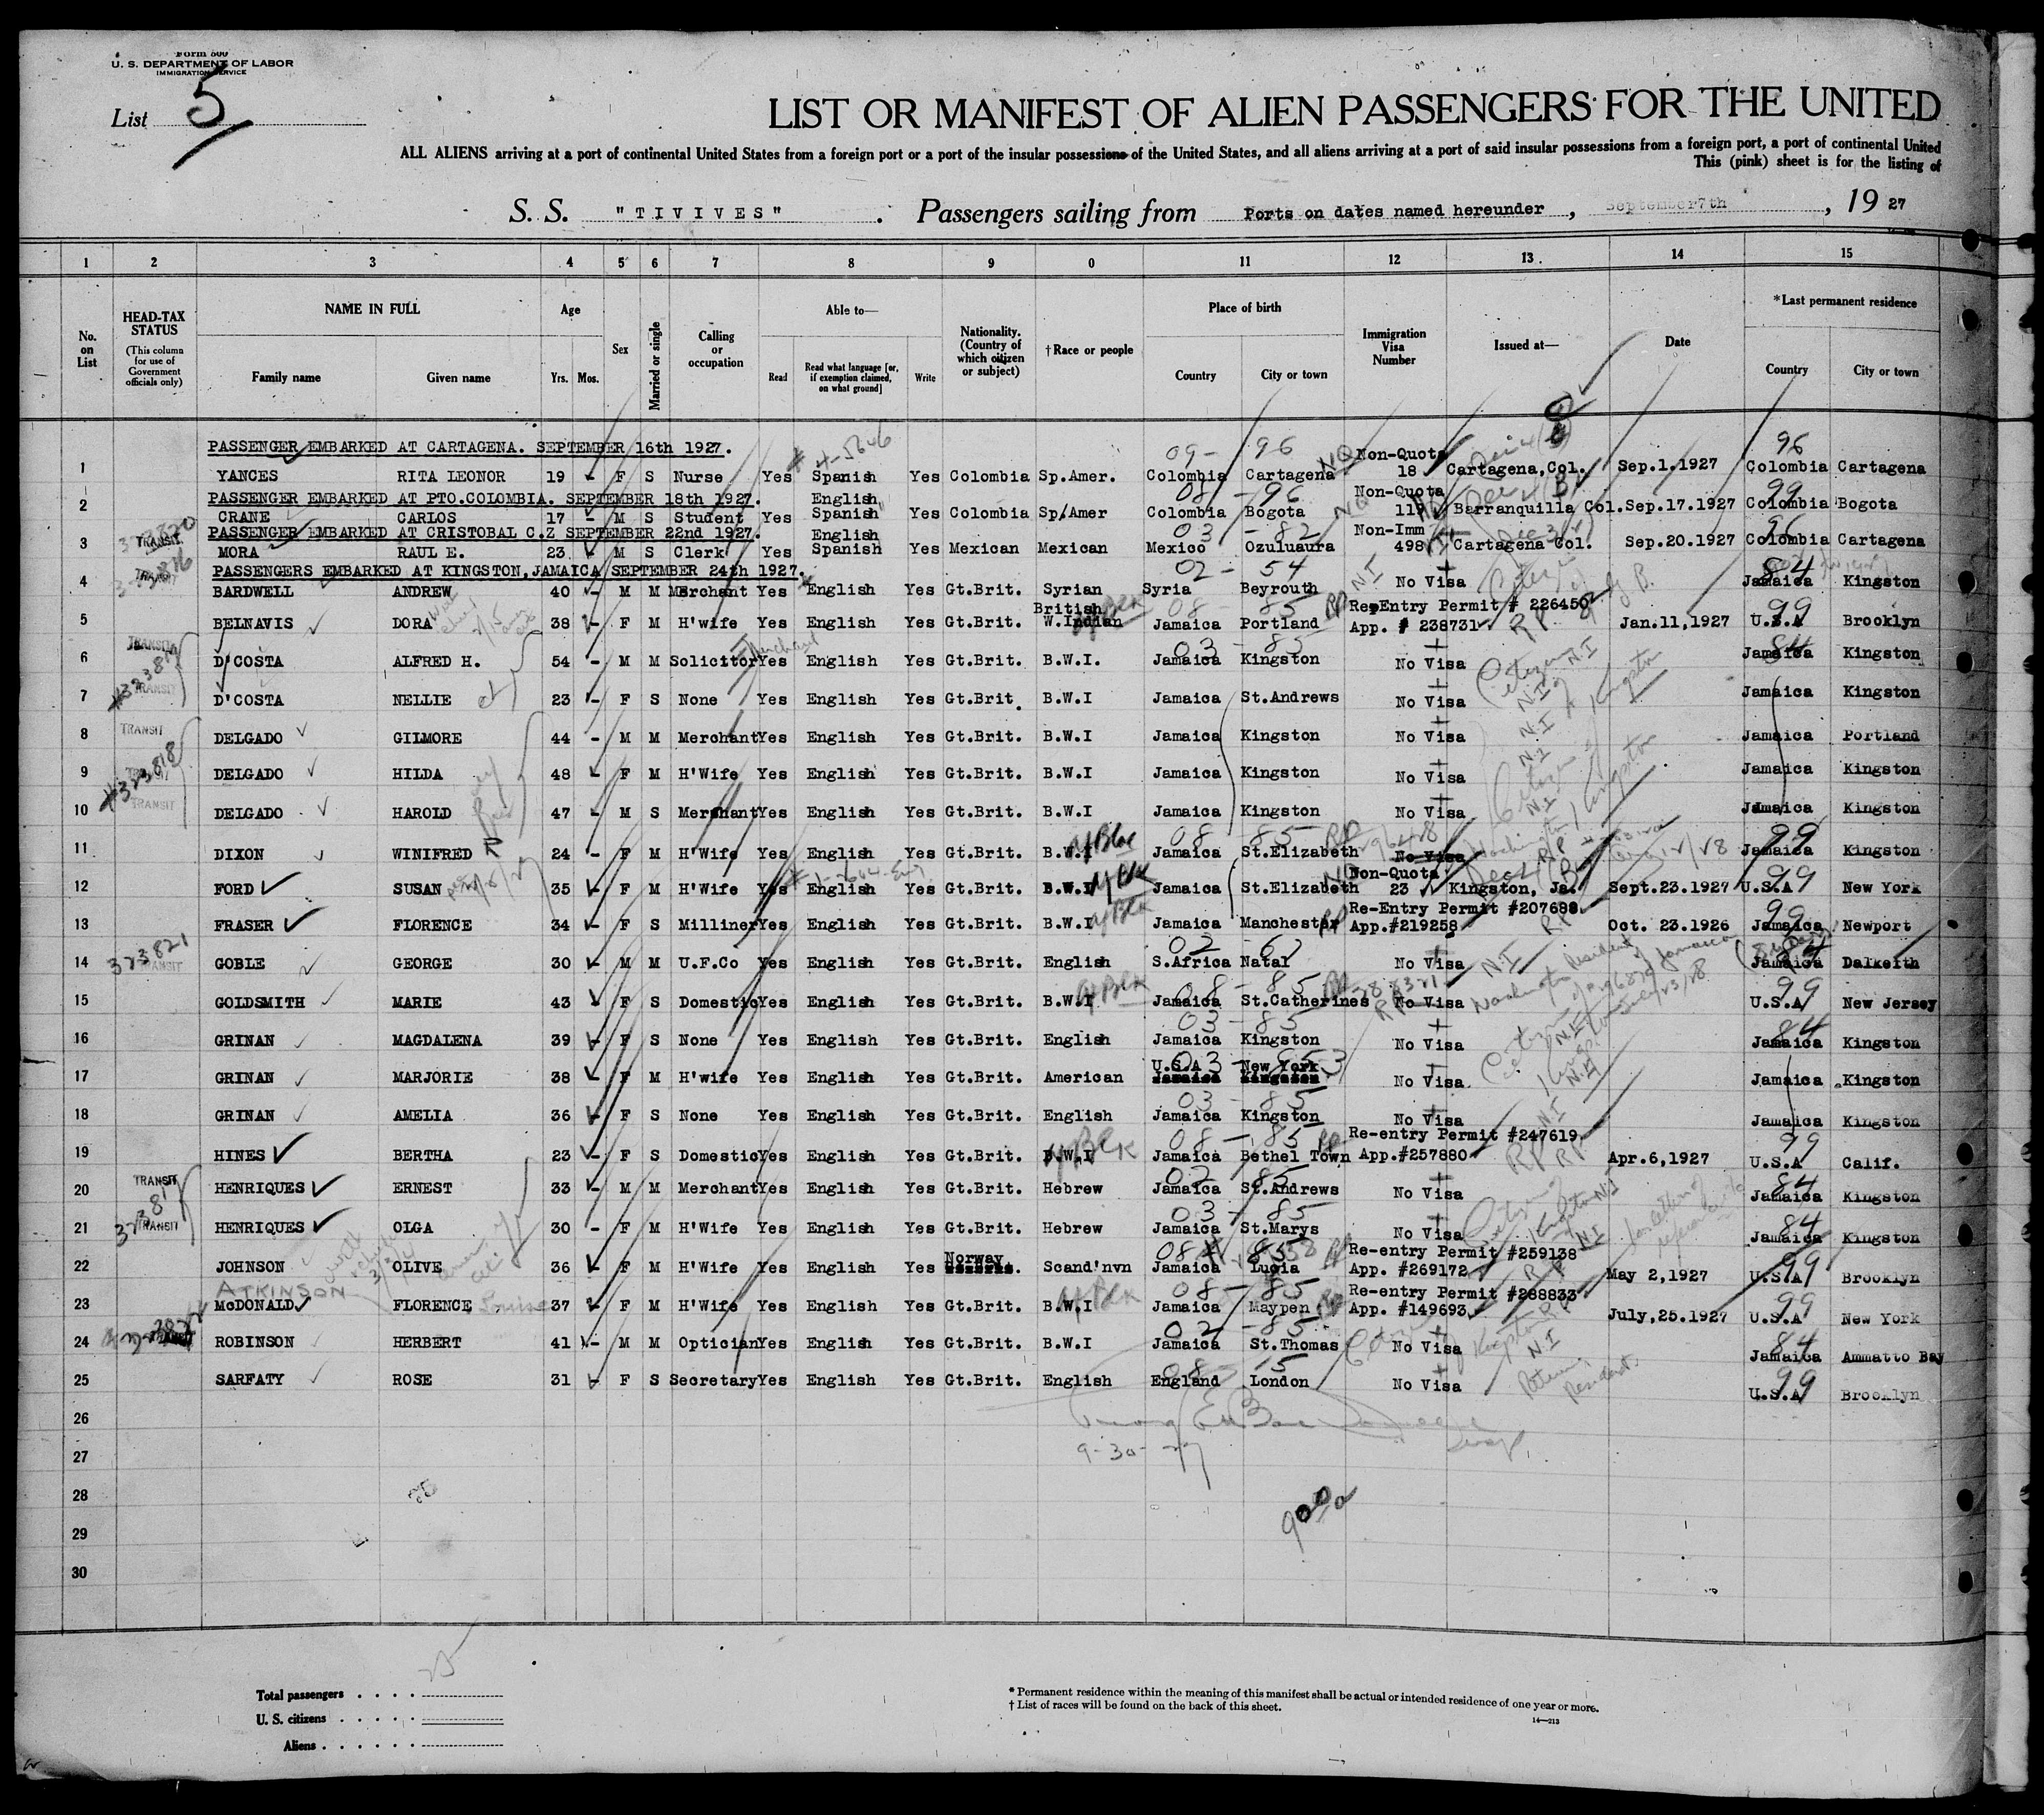 Form 500
U. S. DEPARTMENT OF LABOR
IMMIGRATION SERVICE
List 5
LIST OR MANIFEST OF ALIEN PASSENGERS FOR THE UNITED
ALL ALIENS arriving at a port of continental United States from a foreign port or a port of the insular possessions of the United States, and all aliens arriving at a port of said insular possessions from a foreign port, a port of continental United
This (pink) sheet is for the listing of
S. S. "TIVIVES". Passengers sailing from Ports on dates named hereunder, September 7th, 19 27
1 2 3 4 5 6 7 8 9 0 11 12 13 14 15
No. on List
HEAD-TAX STATUS
(This column for use of Government officials only)
NAME IN FULL
Family name Given name
Age
Yrs. Mos.
Sex
Married or single
Calling or occupation
Able to—
Read Read what language [or, if exemption claimed, on what ground] Write
Nationality. (Country of which citizen or subject)
†Race or people
Place of birth
Country City or town
Immigration Visa Number
Issued at—
Date
*Last permanent residence
Country City or town
PASSENGER EMBARKED AT CARTAGENA. SEPTEMBER 16th 1927.
1 YANCES RITA LEONOR 19 F S Nurse Yes Spanish Yes Colombia Sp.Amer. Colombia Cartagena Non-Quota 18 Cartagena,Col. Sep.1.1927 Colombia Cartagena
PASSENGER EMBARKED AT PTO.COLOMBIA. SEPTEMBER 18th 1927.
2 CRANE CARLOS 17 - M S Student Yes English Spanish Yes Colombia Sp/Amer Colombia Bogota Non-Quota 119 Barranquilla Col. Sep.17.1927 Colombia Bogota
PASSENGER EMBARKED AT CRISTOBAL C.Z SEPTEMBER 22nd 1927.
3 TRANSIT MORA RAUL E. 23 M S Clerk Yes English Spanish Yes Mexican Mexican Mexico Ozuluaura Non-Imm 498 Cartagena Col. Sep.20.1927 Colombia Cartagena
PASSENGERS EMBARKED AT KINGSTON,JAMAICA SEPTEMBER 24th 1927.
4 TRANSIT BARDWELL ANDREW 40 - M M Merchant Yes English Yes Gt.Brit. Syrian Syria Beyrouth No Visa Jamaica Kingston
5 BELNAVIS DORA 38 - F M H'wife Yes English Yes Gt.Brit. British W.Indian Jamaica Portland Re-Entry Permit # 226450 App. # 238731 Jan.11,1927 U.S.A Brooklyn
6 TRANSIT D'COSTA ALFRED H. 54 - M M Solicitor Yes English Yes Gt.Brit. B.W.I. Jamaica Kingston No Visa Jamaica Kingston
7 TRANSIT D'COSTA NELLIE 23 - F S None Yes English Yes Gt.Brit. B.W.I Jamaica St.Andrews No Visa Jamaica Kingston
8 TRANSIT DELGADO GILMORE 44 - M M Merchant Yes English Yes Gt.Brit. B.W.I Jamaica Kingston No Visa Jamaica Portland
9 TRANSIT DELGADO HILDA 48 - F M H'Wife Yes English Yes Gt.Brit. B.W.I Jamaica Kingston No Visa Jamaica Kingston
10 TRANSIT DELGADO HAROLD 47 - M S Merchant Yes English Yes Gt.Brit. B.W.I Jamaica Kingston No Visa Jamaica Kingston
11 DIXON WINIFRED R 24 - F M H'Wife Yes English Yes Gt.Brit. B.W.I Jamaica St.Elizabeth No Visa Jamaica Kingston
12 FORD SUSAN 35 - F M H'Wife Yes English Yes Gt.Brit. B.W.I Jamaica St.Elizabeth Non-Quota 23 Kingston, Ja. Sept.23.1927 U.S.A New York
13 FRASER FLORENCE 34 - F S Milliner Yes English Yes Gt.Brit. B.W.I Jamaica Manchester Re-Entry Permit #207688 App.#219258 Oct. 23.1926 Jamaica Newport
14 323821 TRANSIT GOBLE GEORGE 30 - M M U.F.Co Yes English Yes Gt.Brit. English S.Africa Natal No Visa Jamaica Dalkeith
15 GOLDSMITH MARIE 43 F S Domestic Yes English Yes Gt.Brit. B.W.I Jamaica St.Catherines No Visa U.S.A New Jersey
16 GRINAN MAGDALENA 39 - F S None Yes English Yes Gt.Brit. English Jamaica Kingston No Visa Jamaica Kingston
17 GRINAN MARJORIE 38 F M H'wife Yes English Yes Gt.Brit. American U.S.A New York No Visa Jamaica Kingston
18 GRINAN AMELIA 36 - F S None Yes English Yes Gt.Brit. English Jamaica Kingston No Visa Jamaica Kingston
19 HINES BERTHA 23 - F S Domestic Yes English Yes Gt.Brit. B.W.I Jamaica Bethel Town Re-entry Permit #247619 App.#257880 Apr.6,1927 U.S.A Calif.
20 TRANSIT HENRIQUES ERNEST 33 - M M Merchant Yes English Yes Gt.Brit. Hebrew Jamaica St.Andrews No Visa Jamaica Kingston
21 TRANSIT HENRIQUES OLGA 30 - F M H'Wife Yes English Yes Gt.Brit. Hebrew Jamaica St.Marys No Visa Jamaica Kingston
22 JOHNSON OLIVE 36 F M H'Wife Yes English Yes Norway Scand'nvn Jamaica Lucia Re-entry Permit #259138 App. #269172 May 2,1927 U.S.A Brooklyn
ATKINSON
23 McDONALD FLORENCE Louise 37 - F M H'Wife Yes English Yes Gt.Brit. B.W.I Jamaica Maypen Re-entry Permit #288833 App. #149693 July,25.1927 U.S.A New York
24 ROBINSON HERBERT 41 - M M Optician Yes English Yes Gt.Brit. B.W.I Jamaica St.Thomas No Visa Jamaica Ammatto Bay
25 SARFATY ROSE 31 - F S Secretary Yes English Yes Gt.Brit. English England London No Visa U.S.A Brooklyn
26
9-30-27
27
28
29
30
Total passengers . . . .
U. S. citizens . . . . .
Aliens . . . . . .
* Permanent residence within the meaning of this manifest shall be actual or intended residence of one year or more.
† List of races will be found on the back of this sheet.
14—213